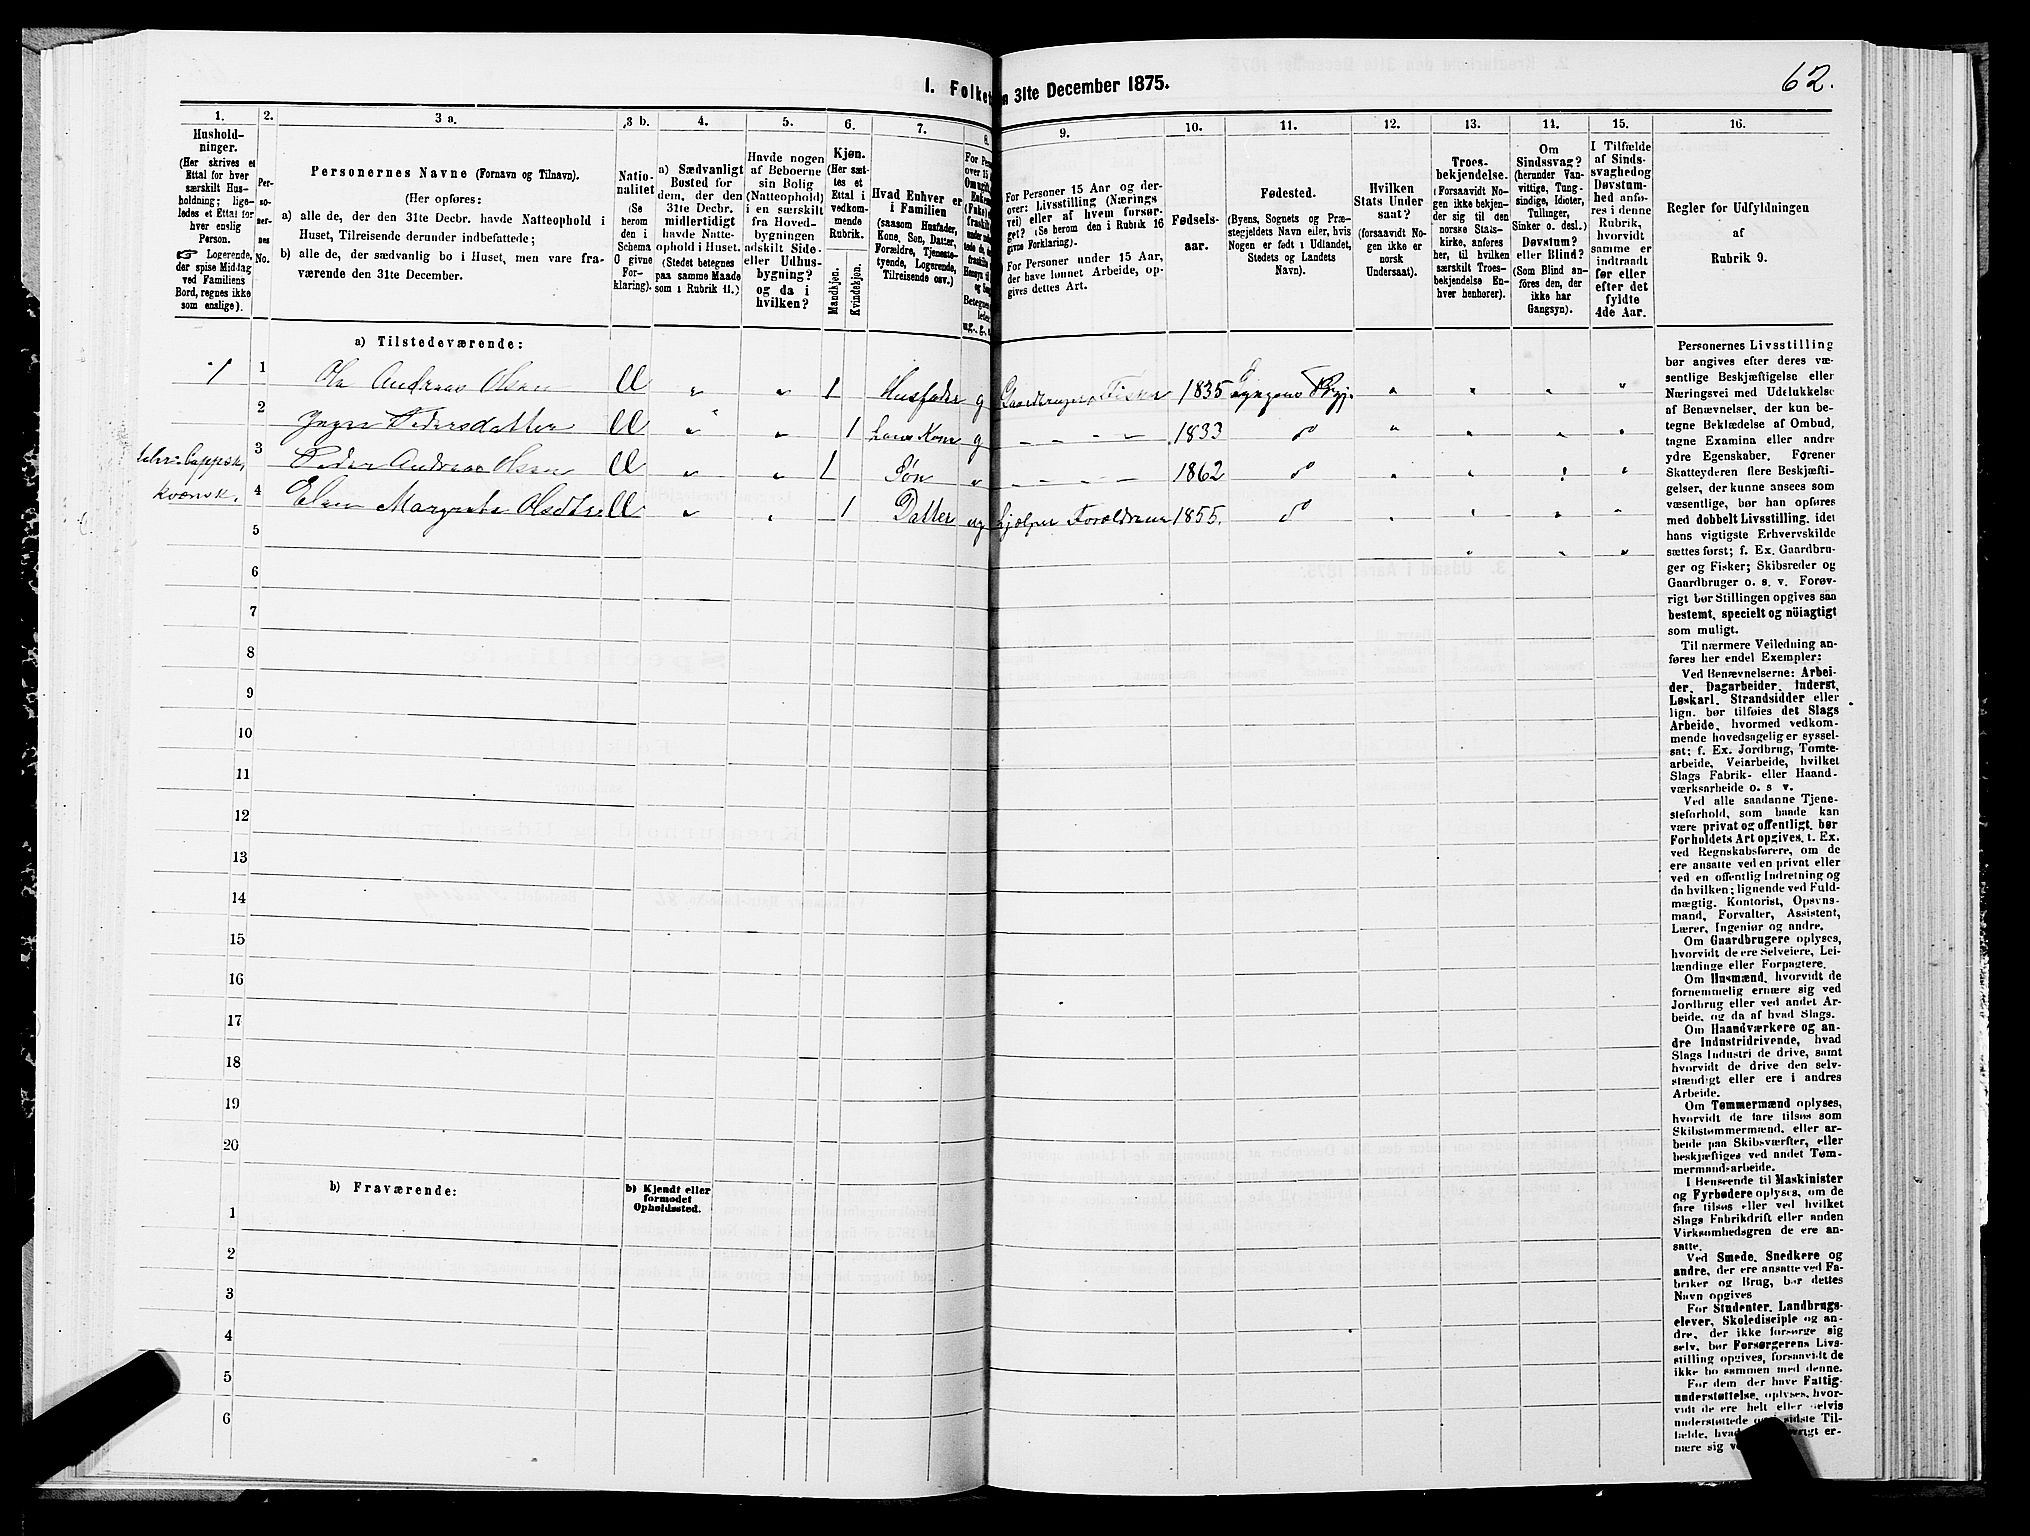 1. Folket
n 31te December 1875.
62.
1.
Hushold-
ninger.
(Her skrives et
Ettal for hver
særskilt Hus-
holdning; lige-
ledes et Ettal for
hver enslig
Person.
☞ Logerende,
der spise Middag
ved Familiens
Bord, regnes ikke
som enslige).
2.
Per-
so-
ner-
nes
No.
3 a.
Personernes Navne (Fornavn og Tilnavn).
(Her opføres:
a) alle de, der den 31te Decbr. havde Natteophold i
Huset, Tilreisende derunder indbefattede;
b) alle de, der sædvanlig bo i Huset, men vare fra-
værende den 31te December.
3 b.
Natio-
nalitet
(Se
herom
den i
Schema
O givne
For-
klaring).
4.
a) Sædvanligt
Bosted for
dem, der den
31te Decbr.
midlertidigt
havde Natte-
ophold i Huset.
(Stedet betegnes
paa samme Maade
som i Rubrik 11.)
5.
Havde nogen
af Beboerne
sin Bolig
(Natteophold)
i en særskilt
fra Hoved-
bygningen
adskilt Side-
eller Udhus-
bygning?
og da i
hvilken?
6.
Kjøn.
(Her sæt-
tes et
Ettal i
vedkom-
mende
Rubrik.
Mandkjøn.
Kvindekjøn.
7.
Hvad Enhver er
i Familien
(saasom Husfader,
Kone, Søn, Datter,
Forældre, Tjeneste-
tyende, Logerende,
Tilreisende osv.)
8.
For Pers
over 15
9.
For Personer 15 Aar og der-
over: Livsstilling (Nærings
vei) eller af hvem forsør-
get? (Se herom den i Rubrik 16
givne Forklaring).
For Personer under 15 Aar,
der have lønnet Arbeide, op-
gives dettes Art.
10.
Fødsels-
aar.
11.
Fødested.
(Byens, Sognets og Præ-
stegjeldets Navn eller, hvis
Nogen er født i Udlandet,
Stedets og Landets
Navn).
12.
Hvilken
Stats Under
saat?
(forsaavidt No-
gen ikke er
norsk
Undersaat).
13.
Troes-
bekjendelse.
(Forsaavidt No-
gen ikke bekjen-
der sig til den
norske Stats-
kirke, anføres
her, til hvilken
særskilt Troes-
bekjendelse En-
hver henhører).
14.
Om
Sindssvag?
(herunder Van-
vittige, Tung-
sindige, Idioter,
Tullinger,
Sinker o. desl.)
Døvstum?
eller Blind?
(Som Blind an-
føres den, der
ikke har
Gangsyn).
15.
I Tilfælde
af Sinds-
svaghed og
Døvstum-
hed anfø-
res i denne
Rubrik,
hvorvidt
samme er
indtraadt
før eller
efter det
fyldte
4de Aar.
16.
Regler for Udfyldningen
af
Rubrik 9.
a) Tilstedeværende:
1 1 Ola Andreas Olsen 1 Husfader g Gaardbruger, Fisker 1835 Lyngens Prgj.
2 Inger Pedersdatter 1 hans Kone g 1833 do
3 Peder Andreas Olsen 1 Søn 1862 do
Kvænsk.
4 Elen Margrete Olsdtr 1 Datter ug hjelper Forældrene 1855. do
5
6
7
8
9
10
11
12
13
14
15
16
17
18
19
20
b) Fraværende:
b) Kjendt eller
formodet
Opholdssted.
1
2
3
4
5
6
Personernes Livsstilling
bør angives efter deres væ-
sentlige Beskjæftigelse eller
Næringsvei med Udelukkelse
af Benævnelser, der kun be-
tegne Beklædelse af Ombud,
tagne Examina eller andre
ydre Egenskaber. Forener
Skatteyderen flere Beskjæfti-
gelser, der kunne ansees som
væsentlige, bør han opføres
med dobbelt Livsstilling, idet
hans vigtigste Erhvervskilde
sættes først; f. Ex. Gaardbru-
ger og Fisker; Skibsreder og
Gaardbruger o. s. v. Forøv-
rigt bør Stillingen opgives saa
bestemt, specielt og nöiagtigt
som muligt.
Til nærmere Veiledning an-
føres her endel Exempler:
Ved Benævnelserne: Arbei-
der, Dagarbeider, Inderst,
Løskarl, Strandsidder eller
lign. bør tilføies det Slags
Arbeide, hvormed vedkom-
mende hovedsagelig er syssel-
sat; f. Ex. Jordbrug, Tomte-
arbeide, Veiarbeide, hvilket
Slags Fabrik- eller Haand-
værksarbeide o. s v.
Ved alle saadanne Tjene-
steforhold, som baade kan
være privat og offentligt, bør
Forholdets Art opgives, t. Ex.
ved Regnskabsførere, om de
ere ansatte ved en privat eller
ved en offentlig Indretning og
da hvilken; lignende ved Fuld-
mægtig, Kontorist, Opsyns-
mand, Forvalter, Assistent,
Lærer, Ingeniør og andre.
Om Gaardbrugere oplyses,
hvorvidt de ere Selveiere, Lei-
lændinge eller Forpagtere.
Om Husmænd, hvorvidt de
fornemmelig ernære sig ved
Jordbrug eller ved andet Ar-
beide, og da af hvad Slags.
Om Haandværkere og an-
dre Industridrivende, hvad
Slags Industri de drive, samt
hvorvidt de drive den selv-
stændigt eller ere i andres
Arbeide.
Om Tømmermænd oplyses,
hvorvidt de fare tilsøs som
Skibstømmermænd, eller ar-
beide paa Skibsværfter, eller
beskjæftiges ved andet Tøm-
mermandsarbeide.
I Henseende til Maskinister
og Fyrbødere oplyses, om de
fare tilsøs eller ved hvilket
Slags Fabrikdrift eller anden
Virksomhedsgren de ere an-
satte.
Ved Smede, Snedkere og
andre, der ere ansatte ved Fa-
briker og Brug, bør dettes
Navn opgives
For Studenter, Landbrugs-
elever, Skoledisciple og an-
dre, der ikke forsørge sig
selv, bør Forsørgerens Livs-
stilling opgives, forsaavidt de
ikke bo sammen med denne.
For dem der have Fattig-
understøttelse, oplyses, hvor-
vidt de ere helt eller delvis
understøttede